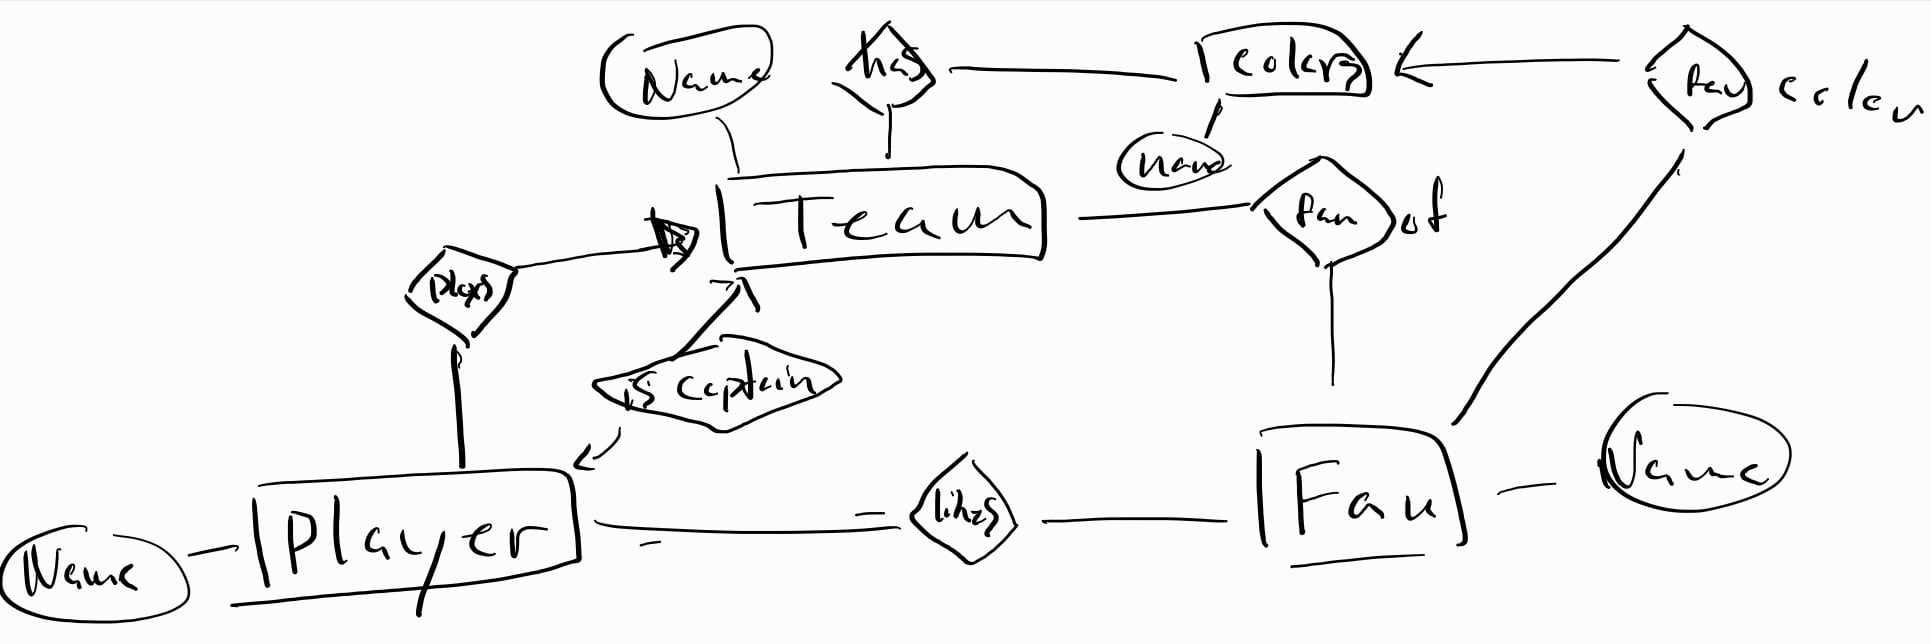 Name
has
colors
fav color
name
Team
fan of
plays
is captain
Player
Name
likes
Fan
Name